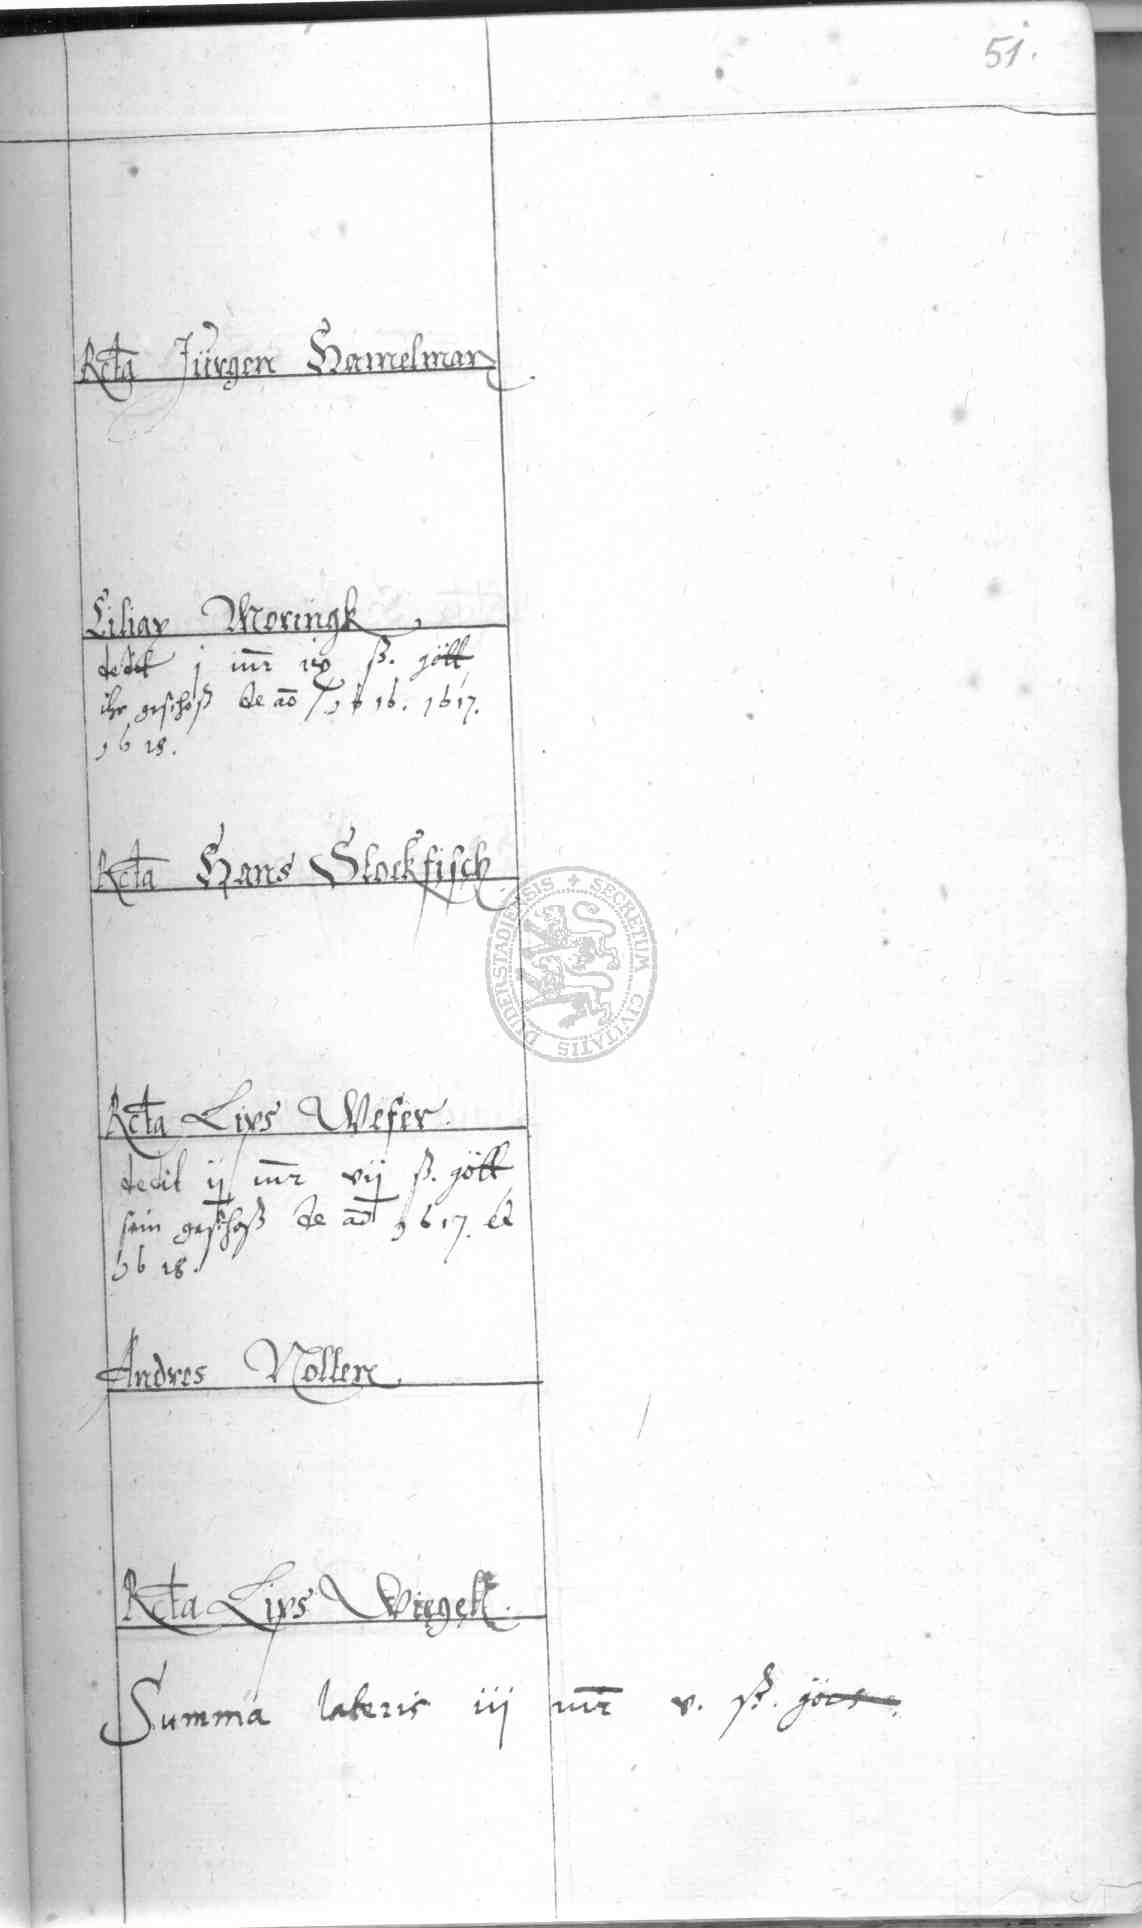 51.
Rcta Jürgen Hamelman
Ciliax Moringk
dedit j mr ix ß. gött
ihr geschoß de ao 1616. 1617.
1618.
Rcta Hans Stockfisch
Rcta Lips Weser.
dedit ij mr vij ß. gött
sein geschoß de ao 1617. et
1618.
Andres Nolten
Rcta Lips Wiegell.
Summa lateris iij mr v. ß.
SECRETUM CIVITATIS DUDERSTADIENSIS